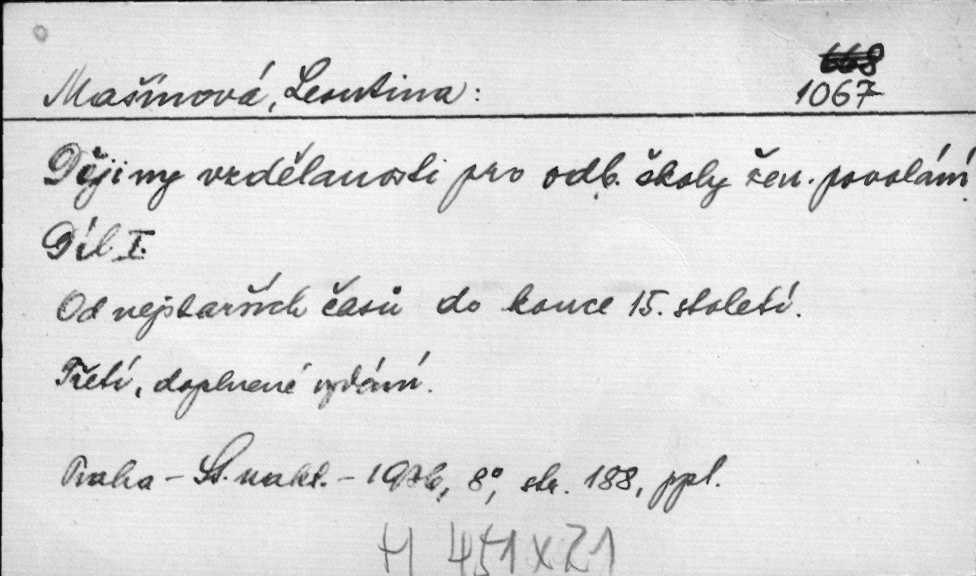 668
Mašínová, Leontina:
1067
Dějiny vzdělanosti pro odb. školy žen. povolání
Díl I.
Od nejstarších časů do konce 15. století.
Třetí, doplnené vydání.
Praha - St. nakl. - 8°, str. 188, ppl.
H 451 x 21